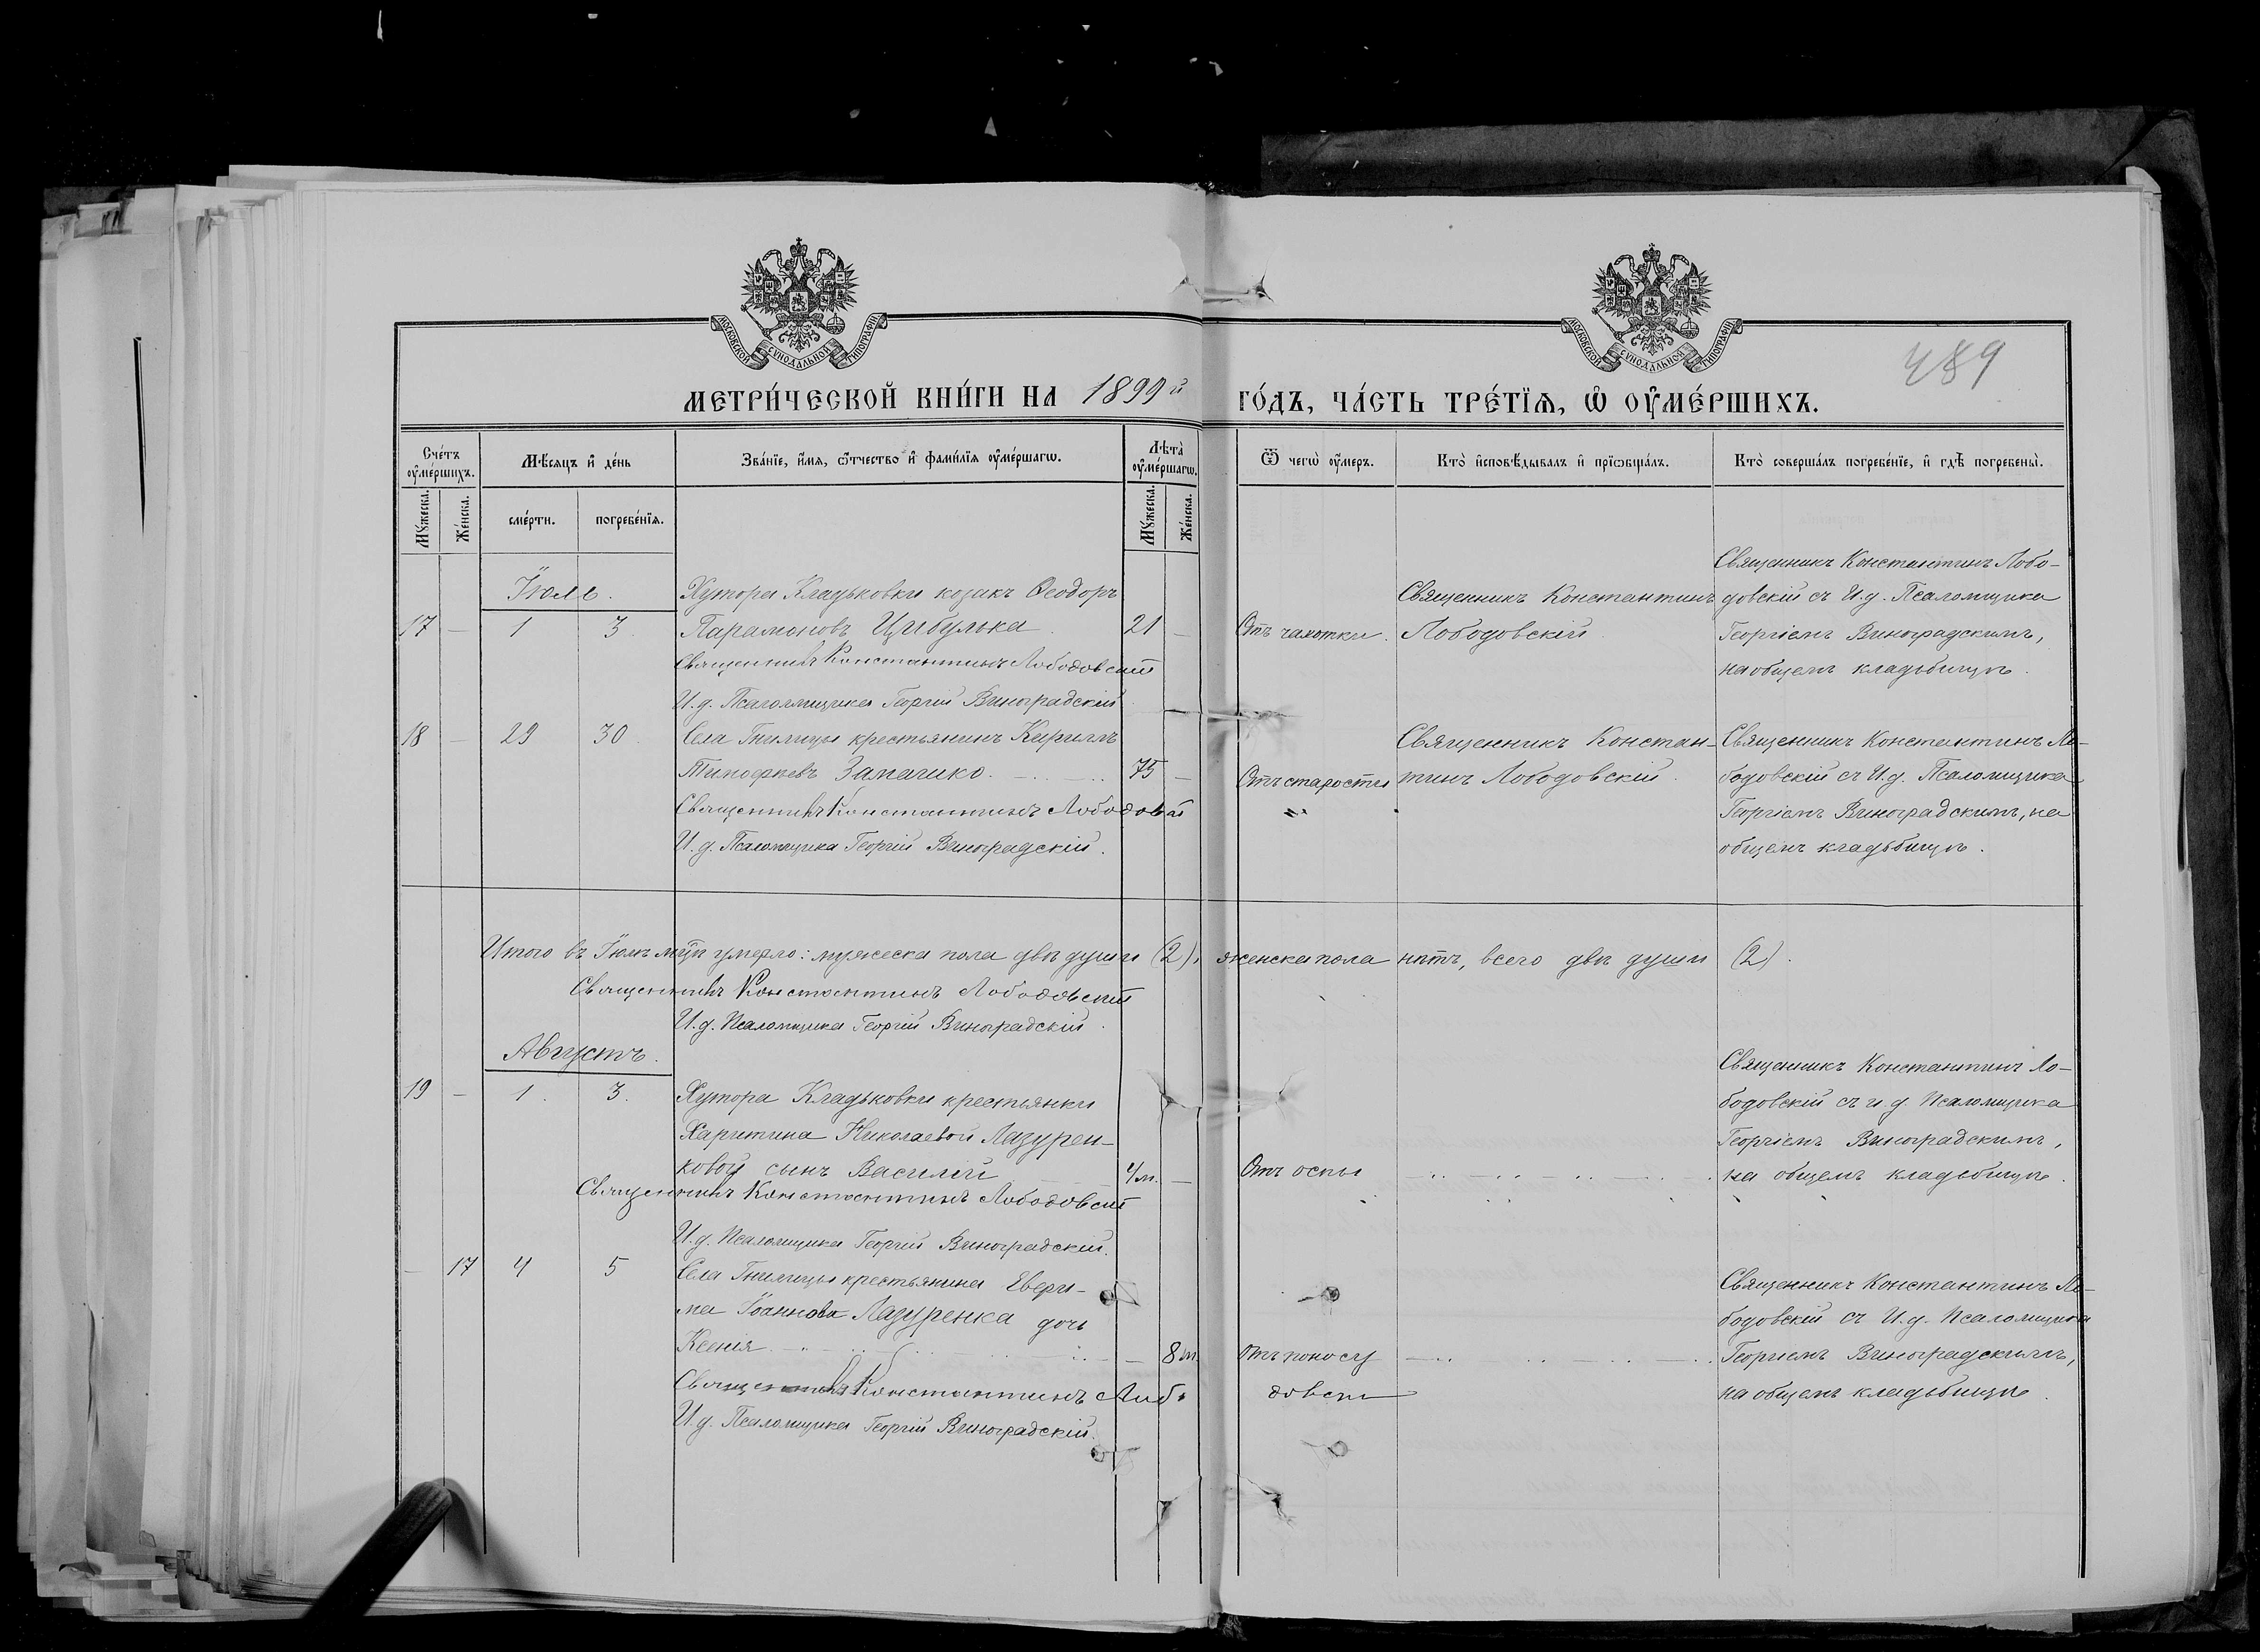 МОСКОВСКОЙ СѴНОДАЛЬНОЙ ТИПОГРАФІИ
МОСКОВСКОЙ СѴНОДАЛЬНОЙ ТИПОГРАФІИ
489
МЕТРИ́ЧЕСКОЙ КНИ́ГИ НА 1899й ГО́ДЪ, ЧА́СТЬ ТРЕ́ТЇѦ, Ѡ҆ ОУ҆МЕ́РШИХЪ.
Сче́тъ оу҆ме́ршихъ.
Мꙋ́жеска.
Же́нска.
Мѣ́сѧцъ и҆ де́нь
сме́рти.
погребе́нїѧ.
Зва́нїе, и҆́мѧ, ѻ҆́тчество и҆ фами́лїѧ оу҆ме́ршагѡ.
Лѣ̀та оу҆ме́ршагѡ.
Мꙋ́жеска.
Же́нска.
Ѿ чегѡ̀ оу҆́меръ.
Кто̀ и҆сповѣ́дывалъ и҆ прїѡбща́лъ.
Кто̀ соверша́лъ погребе́нїе, и҆ гдѣ̀ погребены̀.
Іюль.
17 — 1 3
Хутора Кладьковки козакъ Ѳеодоръ
Парамоновъ Цибулька. 21 —
Священникъ Константинъ Лободовскій
И. д. Псаломщика Георгій Виноградскій
Отъ чахотки.
Священникъ Константинъ
Лободовскій.
Священникъ Константинъ Лобо-
довскій съ И. д. Псаломщика
Георгіемъ Виноградскимъ,
на общемъ кладьбищѣ.
18 — 29 30
Села Гнилицы крестьянинъ Кириллъ
Тимофѣевъ 75 —
Священникъ Константинъ
И. д. Псаломщика Георгій Виноградскій.
Отъ старости
Священникъ Констан-
тинъ Лободовскій.
Священникъ Константинъ Ло-
бодовскій съ И. д. Псаломщика
Георгіемъ Виноградскимъ, на
общемъ кладьбищѣ.
Итого въ Іюлѣ м-цѣ умерло: мужеска пола двѣ души (2), женска пола нѣтъ, всего двѣ души (2).
Священникъ Константинъ Лободовскій
И. д. Псаломщика Георгій Виноградскій.
Августъ.
19 — 1. 3.
Хутора Кладьковки крестьянки
Харитина Николаевой Лазурен-
ковой сынъ Василій 4 м. —
Священникъ Константинъ Лободовскій
И. д. Псаломщика Георгій Виноградскій.
Отъ оспы
Священникъ Константинъ Ло-
бодовскій съ и. д. Псаломщика
Георгіемъ Виноградскимъ,
на общемъ кладьбищѣ.
— 17 4 5
Села Гнилицы крестьянина
Іоаннова Лазуренка дочь
Ксенія — 8 м.
Священникъ Константинъ Лобо
довскі
И. д. Псаломщика Георгій Виноградскій.
Отъ поносу
Священникъ Константинъ Ло-
бодовскій съ И. д. Псаломщика
Георгіемъ Виноградскимъ,
на общемъ кладьбищѣ.